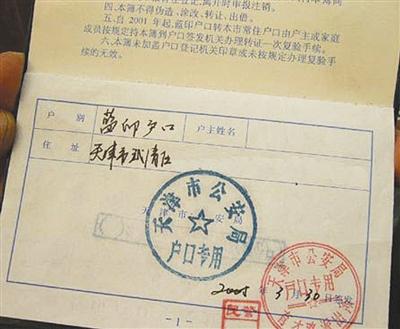 四.本簿不得伪造、涂改、转让、出借。
五.自2001年起,蓝印户口转本市常住户口由户主或家庭
成员按规定持本簿到户口签发机关办理转证一次复验手续。
六.本簿未加盖户口登记机关印章或未按规定办理复验手
续的无效。
户 别 蓝印户口 户主姓名
住 址 天津市武清区
天津市公安局
户口专用
天津市公安局
户口专用
2005年3月30日签发
-1-